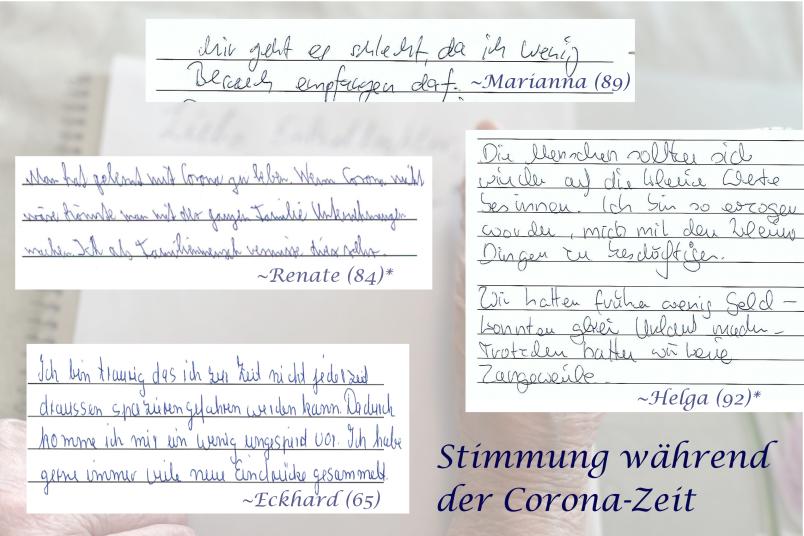 Mir geht es schlecht, da ich wenig
Besuch empfangen darf. ~Marianna (89)
Man hat gelernt mit Corona zu leben. Wenn Corona nicht
wäre könnte man mit der ganzen Familie Unternehmungen
machen. Ich als Familienmensch vermisse dies sehr.
~Renate (84)*
Die Menschen sollten sich
wieder auf die kleine Werte
besinnen. Ich bin so erzogen
worden, mich mit den kleinen
Dingen zu beschäftigen.
Wir hatten früher wenig Geld –
konnten Urlaub machen –
Trotzdem hatten wir keine
Langeweile.
~Helga (92)*
Ich bin traurig das ich zur Zeit nicht jederzeit
draussen spazieren gefahren werden kann. Dadurch
komme ich mir ein wenig eingesperrt vor. Ich habe
gerne immer viele neue Eindrücke gesammelt.
~Eckhard (65)
Stimmung während
der Corona-Zeit